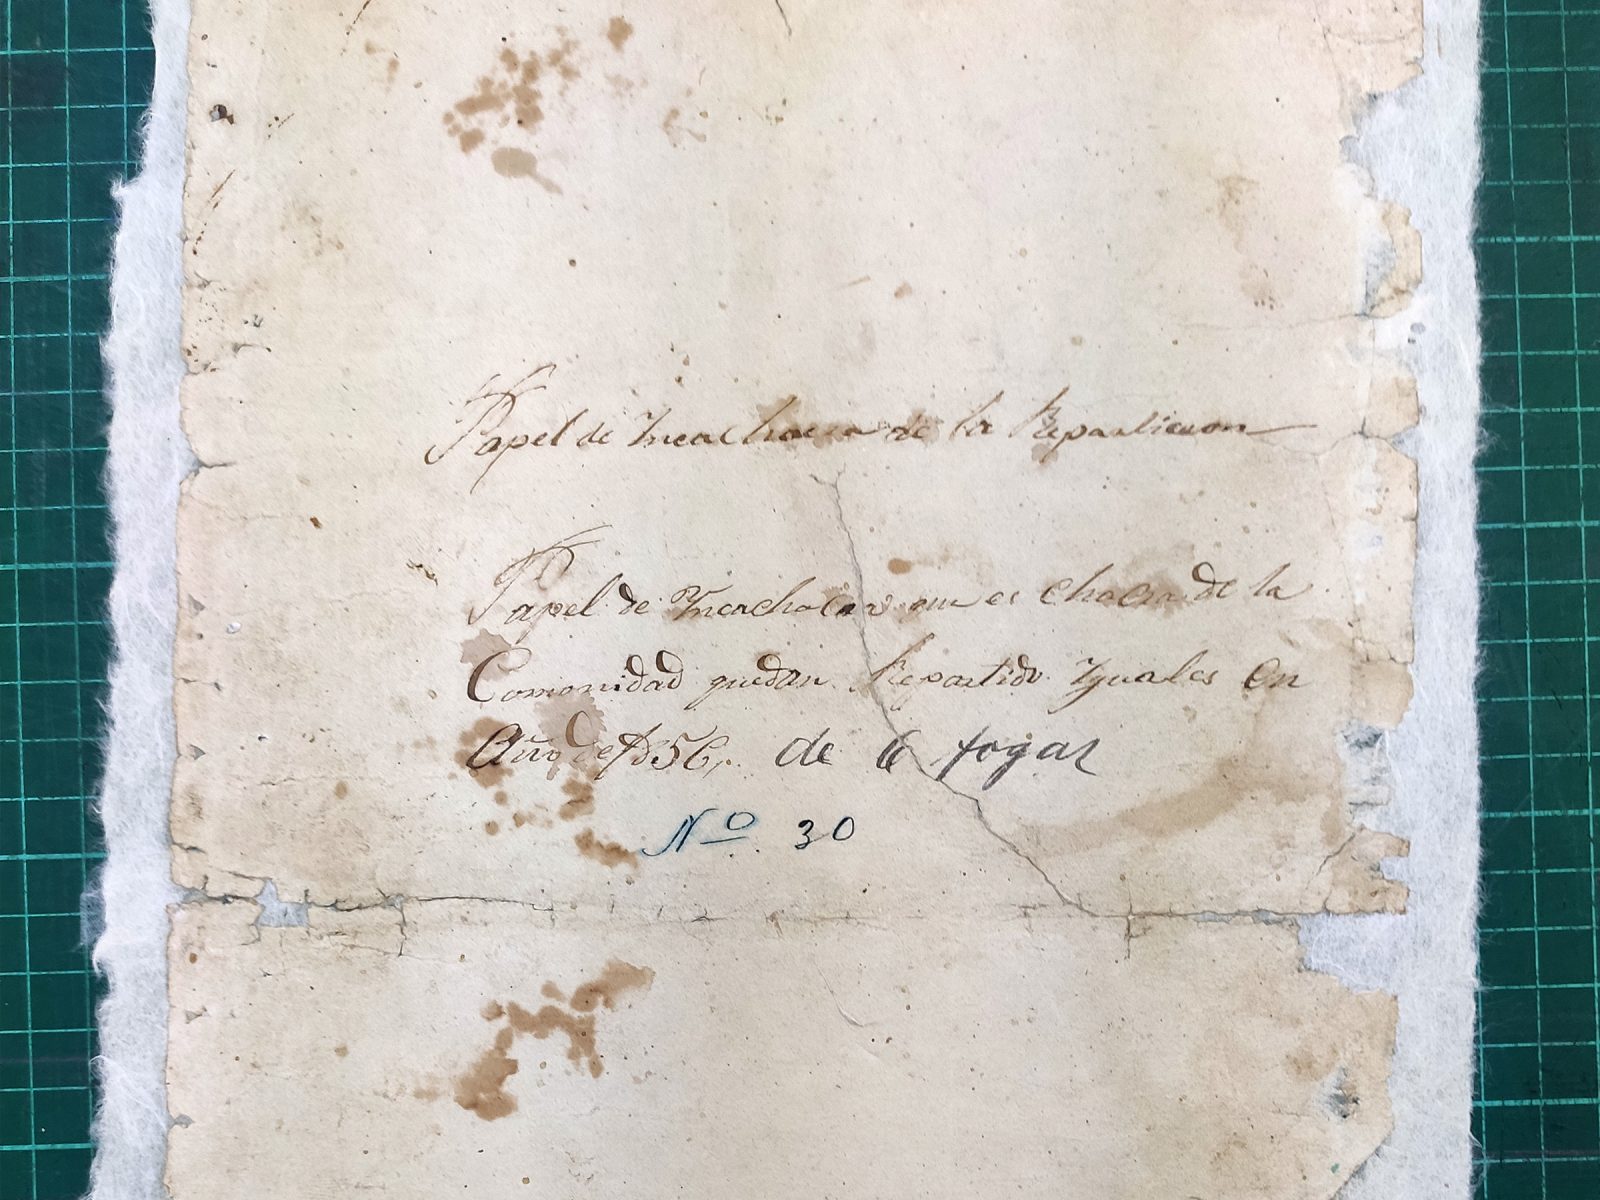 Papel de Yncachacra de la Reparticion
Papel de Yncachacra que es Chacra de la
Comonidad quedan Repartido Yguales en
Año de 1856, de 6 fogas
Nº 30